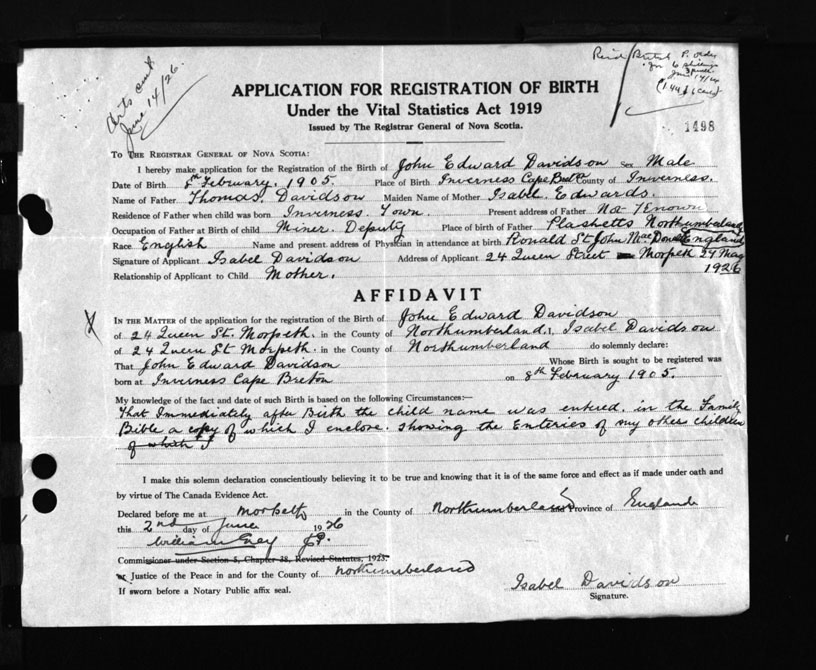 Certs sent
June 14/26.
Recd British P. order
for 6 shillings
June 14/26
1498
APPLICATION FOR REGISTRATION OF BIRTH
Under the Vital Statistics Act 1919
Issued by The Registrar General of Nova Scotia.
TO THE REGISTRAR GENERAL OF NOVA SCOTIA:
I hereby make application for the Registration of the Birth of John Edward Davidson Sex Male
Date of Birth 8th February, 1905. Place of Birth Inverness Cape Breton County of Inverness.
Name of Father Thomas. Davidson Maiden Name of Mother Isabel Edwards.
Residence of Father when child was born Inverness. Town. Present address of Father Not Known
Occupation of Father at Birth of child Miner. Deputy Place of birth of Father Plashetts Northumberland England
Race English Name and present address of Physician in attendance at birth Ronald St John MacDonald
Signature of Applicant Isabel Davidson Address of Applicant 24 Queen Street Morpeth 29 May 1926
Relationship of Applicant to Child Mother.
AFFIDAVIT
IN THE MATTER of the application for the registration of the Birth of John Edward Davidson
of 24 Queen St. Morpeth. in the County of Northumberland. I, Isabel Davidson
of 24 Queen St Morpeth. in the County of Northumberland do solemnly declare:
That John Edward Davidson Whose Birth is sought to be registered was
born at Inverness Cape Breton on 8th February 1905.
My knowledge of the fact and date of such Birth is based on the following Circumstances:—
That Immediately after Birth the child name was entered. in the Family
Bible a copy of which I enclose. showing the Enteries of my other children
of which I
I make this solemn declaration conscientiously believing it to be true and knowing that it is of the same force and effect as if made under oath and
by virtue of The Canada Evidence Act.
Declared before me at Morpeth in the County of Northumberland Province of England
this 2nd day of June 1926
William Grey J.P.
Commissioner under Section 5, Chapter 38, Revised Statutes, 1923.
or Justice of the Peace in and for the County of Northumberland
If sworn before a Notary Public affix seal.
Isabel Davidson
Signature.